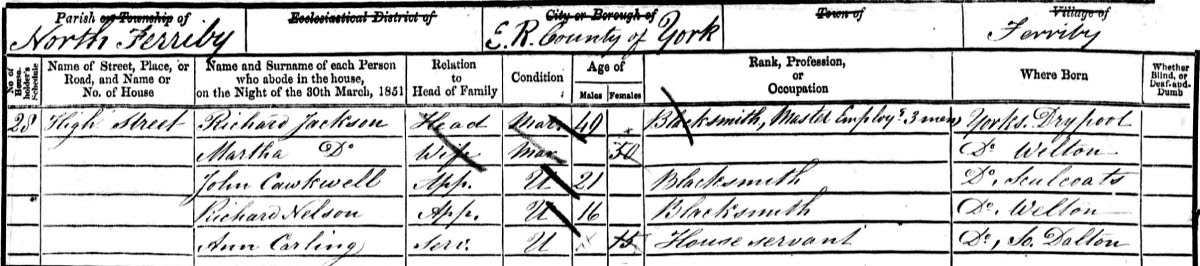 Parish or Township of Ecclesiastical District of City or Borough of Town of Village of
North Ferriby E. R. County of York Ferriby
No. of House-holder's Schedule Name of Street, Place, or Road, and Name or No. of House Name and Surname of each Person who abode in the house, on the Night of the 30th March, 1851 Relation to Head of Family Condition Age of Males Females Rank, Profession, or Occupation Where Born Whether Blind, or Deaf-and-Dumb
28 High Street Richard Jackson Head Mar. 49 Blacksmith, Master Employg 3 men Yorks. Drypool
Martha Do Wife Mar 50 Do Welton
John Cawkwell App. U 21 Blacksmith Do. Sculcoats
Richard Nelson App. U 16 Blacksmith Do. Welton
Ann Carling Serv. U 15 House servant Do, So. Dalton